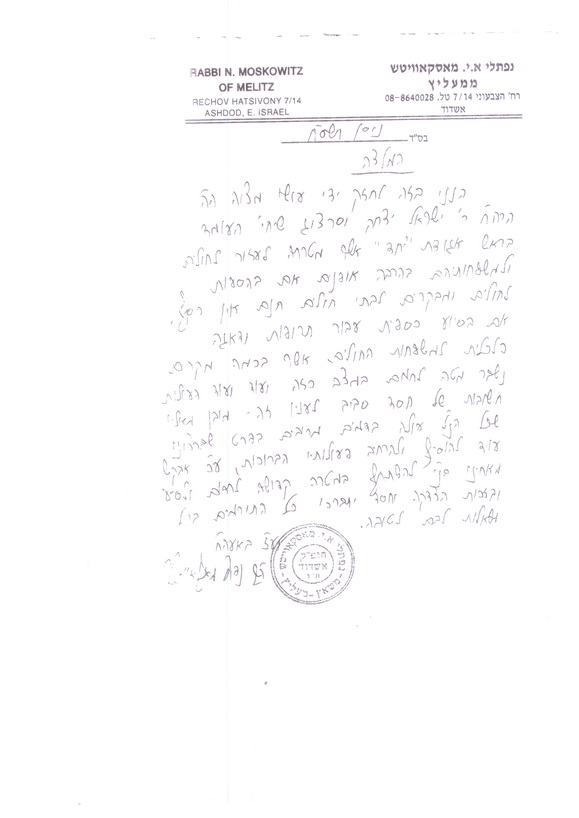 RABBI N. MOSKOWITZ
OF MELITZ
RECHOV HATSIVONY 7/14
ASHDOD, E. ISRAEL
נפתלי א.י. מאסקאוויטש
ממעליץ
רח' הצבעוני 7/14 טל. 08-8640028
אשדוד
בס"ד
ניסן תשס"ח
המלצה
הנני בזה לחזק ידי עושי מצוה הה
הרה"ח ר' ישראל יצחק שיחי' העומד
בראש אגודת "יחד" אשר מטרתה לעזור לחולים
ולמשפחותיהם בהרבה אופנים אם בהסעות
לחולים ומבקרים לבתי חולים חנם אין כסף,
אם בסיוע כספית עבור תרופות ודאגה
כלכלית למשפחות החולים. אשר בכמה מקרים
נשבר מטה לחמם במצב כזה ועוד ועוד פעולות
חשובות של חסד סביב לענין זה. מובן מאליו
שכל הנ"ל עולה בדמים מרובים בפרט שברצוני
עוד להוסיף ולהרחיב פעולותיו הברוכות, ע"כ אבקש
מאחינו בנ"י להשתתף במטרה קדושה לחזק ולסייע
ובזכות הצדקה וחסד יתברכו כל התורמים בכל
משאלות לבם לטובה.
הכו"ח באעה"ח
נפתלי א.י. מאסקאוויטש
חופ"ק
אשדוד